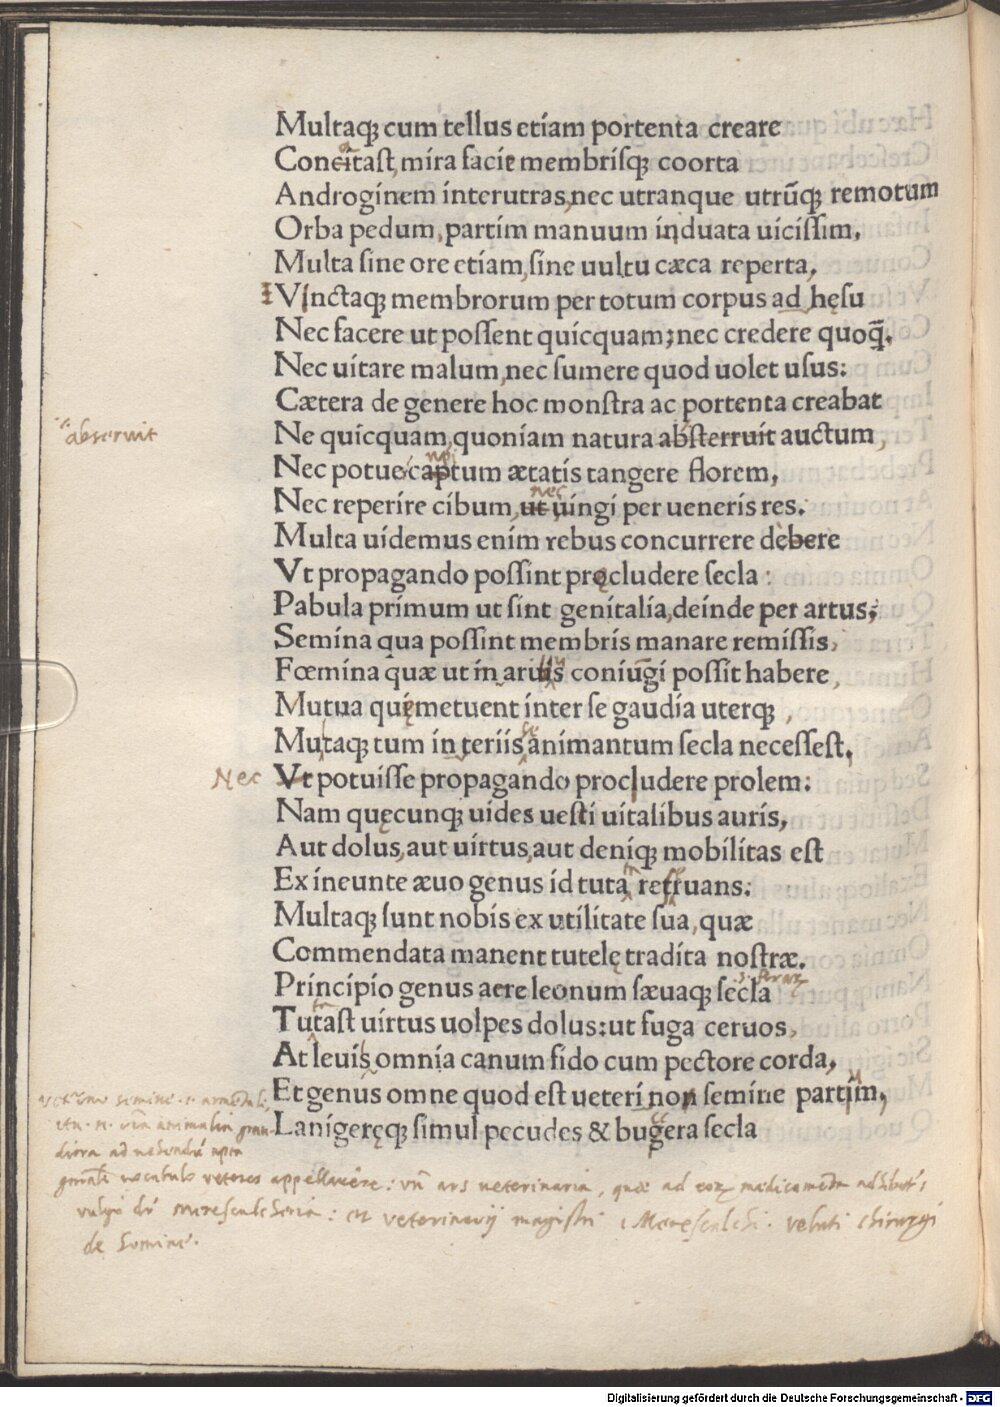 Multaq; cum tellus etiam portenta creare
Concitast, mira facie membrisq; coorta
Androginem interutras, nec utranque utrūq; remotum
Orba pedum, partim manuum induata uicissim,
Multa sine ore etiam, sine uultu cæca reperta,
Vinctaq; membrorum per totum corpus ad hęsu
Nec facere ut possent quicquam; nec credere quoq̄.
Nec uitare malum, nec sumere quod uolet usus:
Cætera de genere hoc monstra ac portenta creabat
absteruit
Ne quicquam, quoniam natura absterruit auctum,
Nec potuere captum ætatis tangere florem,
Nec reperire cibum, ut uingi per ueneris res.
nec
Multa uidemus enim rebus concurrere debere
Vt propagando possint pręcludere secla:
Pabula primum ut sint genitalia, deinde per artus;
Semina qua possint membris manare remissis,
Fœmina quæ ut in ariis coniūgi possit habere,
Mutua quę metuent inter se gaudia uterq;,
Mutaq; tum in teriis animantum secla necessest,
se
Nec
Vt potuisse propagando procludere prolem:
Nam quęcunq; uides uesti uitalibus auris,
Aut dolus, aut uirtus, aut deniq; mobilitas est
Ex ineunte æuo genus id tuta retruans:
Multaq; sunt nobis ex utilitate sua, quæ
Commendata manent tutelę tradita nostræ.
Principio genus acre leonum sæuaq; secla
Tutast uirtus uolpes dolus: ut fuga ceruos,
At leuis omnia canum fido cum pectore corda,
Et genus omne quod est ueteri non semine partim,
Lanigeręq; simul pecudes & bugera secla
semine
animalia
uocabulo veteres appellauere: un̄ ars ueterinaria, quæ ad
et veterinarij magistri, Marescalchi. veluti chirurgi
de homine.
Digitalisierung gefördert durch die Deutsche Forschungsgemeinschaft - DFG